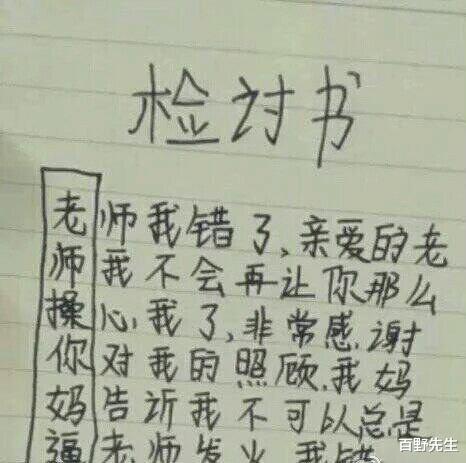 检讨书
老师我错了,亲爱的老
师我不会再让你那么
操心,我了,非常感谢
你对我的照顾.我妈
妈告诉我不可以总是
逼老师发火 我错
百野先生